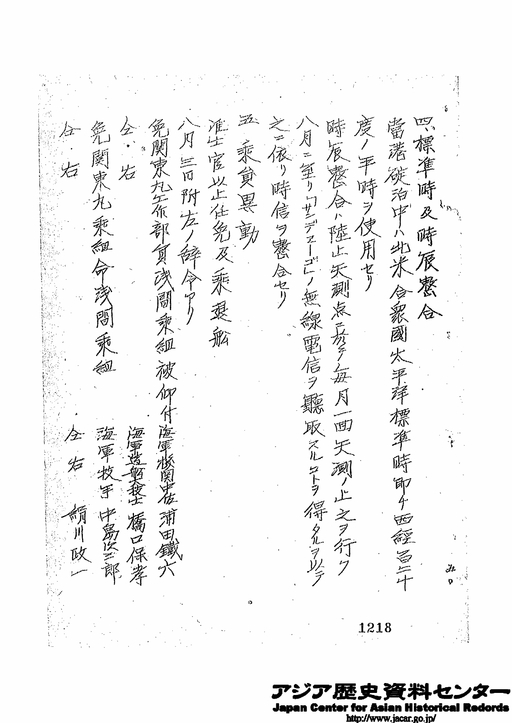 四、標準時及時辰整合
當港碇泊中ハ北米合衆國太平洋標準時即チ西經百二十
度ノ平時ヲ使用セリ
時辰整合ハ陸上天測点ニ於テ毎月一回天測ノ上之ヲ行ク
八月ニ至リ「サンデエーゴ」ノ無線電信ヲ聽取スルコトヲ得タルヲ以テ
之ニ依リ時信ヲ整合セリ
五、乘員異動
准士官以上任免及乘退船
八月三日附左ノ辞令アリ
免関東丸工作部員浅間乘組被仰付 海軍機関中佐 浦田鐵六
仝 右 海軍造船技士 橋口保孝
免関東丸乘組命浅間乘組 海軍技手 中島 郎
仝 右 仝 右 川政一
1218
アジア歴史資料センター
Japan Center for Asian Historical Records
http://www.jacar.go.jp/